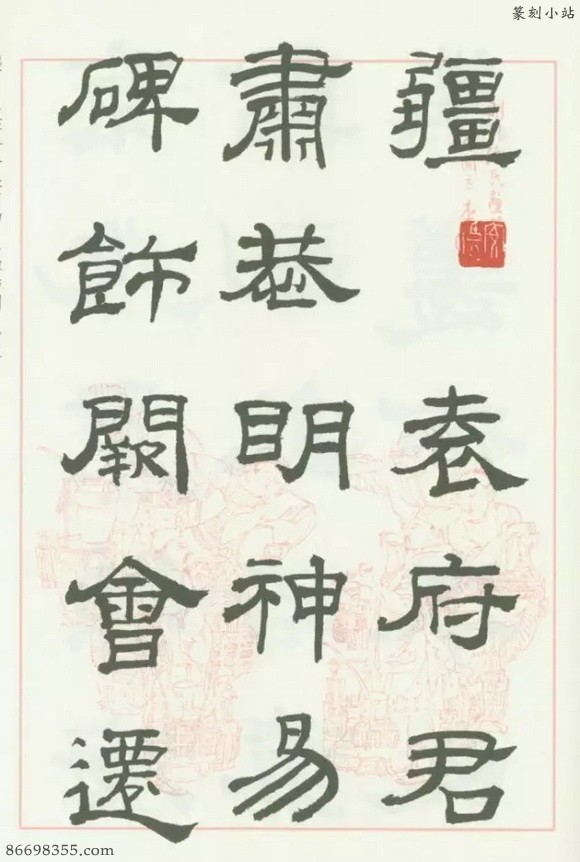 篆刻小站
疆 袁府君
肅恭明神易
碑飾闕會遷
86698355.com